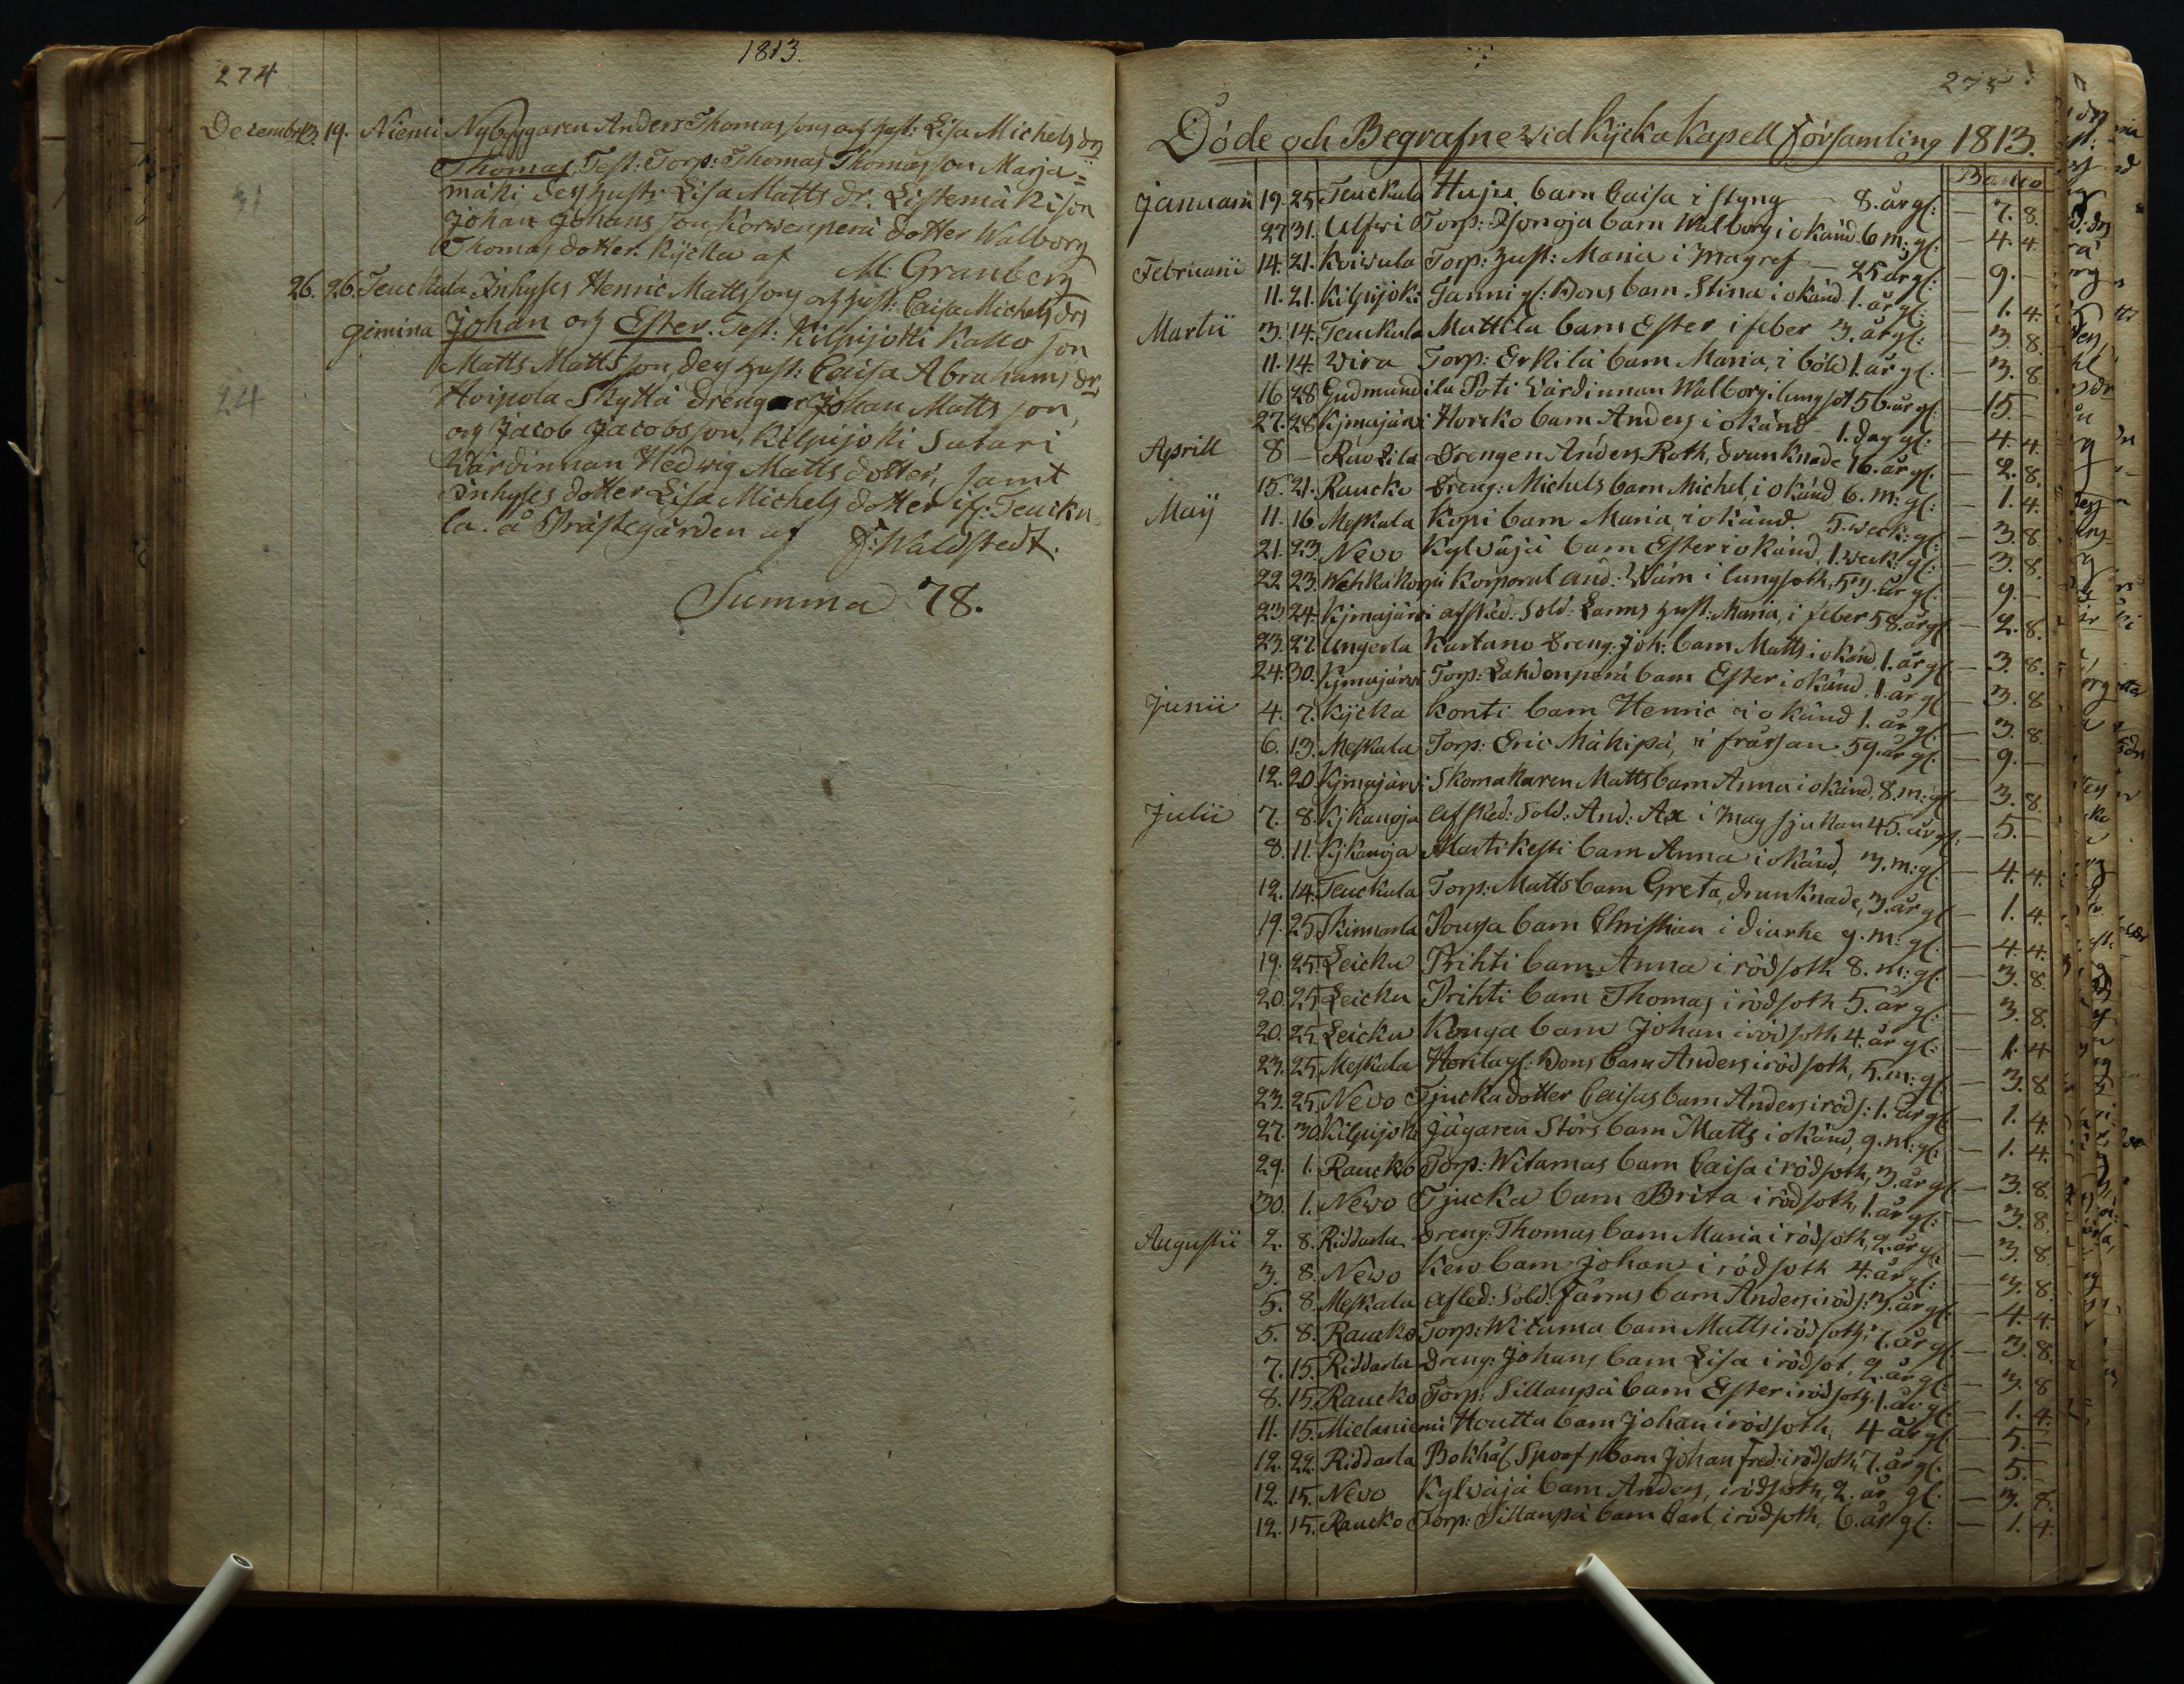 1813.
274
Decembr 13. 19. Niemi Nybyggaren Anders Thomassons och hust: Lisa Michelsdrs
Thomas. Test: Torp: Thomas Thomasson Marja=
mäki des hustr. Lisa Mattsdr. Listemäki son
Johan Johansson, Korwenperä dotter Walborg
Thomasdotter. Kycka af M: Granberg
26. 26. Teuckula Inhyses Henric Mattssons och hust: Caisa Michelsdrs
gemina Johan och Ester. Test: Kilpijoki Kallo son
Matts Mattsson, des hust: Caisa Abrahams dr,
Hoipola Skyttä drengar Johan Matts son,
och Jacob Jacobsson, Kilpijoki Sutari
Wärdinnan Hedwig Matts dotter, samt
inhyses dotter Lisa Michels dotter ifr: Teucku=
la. å Prästegården af F: Waldstedt.
31
24
Summa 78.
275
Döde och Begrafne wid Kycka Kapell Församling 1813.
Banco
Januarii 19. 25. Teuckula Huju barn Caisa i styng 8. år gl: — 7. 8.
27 31. Ulfwi Torp: Isonoja barn Walborg i okänd 6 m: gl: — 4. 4.
Februarii 14. 21. Koiwula Torp: hust: Maria i magref — 25 år gl: — 9. —
11. 21. Kilpijoki Tanni gl: Bons barn Stina i okänd 1. år gl: — 1. 4.
Martii 3. 14. Teuckula Mattila barn Ester i feber 3. år gl: — 3. 8.
11. 14. Wira Torp: Erkilä barn Maria, i böld 1. år gl. — 3. 8.
16 28 Gudmundila Poti Wärdinnan Walborg i lungsot 56. år gl. — 15. —
27. 28 Kjmajärvi Horcko barn Anders i okänd 1. dag gl: — 4. 4.
Aprill 8 — Rautila Drengen Anders Roth, drunknade 16. år gl. — 2. 8.
15. 21. Raucko Dreng: Michels barn Michel, i okänd 6. m: gl: — 1. 4.
Maÿ 11. 16. Meskala Kopi barn Maria, i okänd. 5. weck: gl: — 3. 8.
21. 23. Nevo Kylväjä barn Ester i okänd, 1. weck: gl: — 3. 8.
22 23. Wehkakorpi Korporal And: Wärn i lungsoth, 53. år gl. — 9. —
23. 24. Kjmajärvi afsked: Sold: Larms hust: Maria, i feber 58. år gl — 2. 8.
23. 27. Ungerla Kartano Dreng: Joh: barn Matts i okänd, 1. år gl. — 3. 8.
24. 30. Kjmajärvi Torp: Lahdenperä barn Ester i okänd. 1. år gl — 3. 8
Junii 4. 7. Kycka Konti barn Henric i okänd 1. år gl: — 3. 8.
6. 13. Meskala Torp: Eric Mäkipä, i frässan 59. år gl: — 9. —
12. 20. Kjmajärvi Skomakaren Matts barn Anna i okänd, 8. m: gl — 3. 8.
Julii 7. 8. Kjkanoja afsked: Sold: And: Ax i magsjukan 45. år gl: — 5. —
8. 11. Kjkanoja Martikesti barn Anna i okänd, 3. m: gl: — 4. 4.
12. 14. Teuckula Torp: Matts barn Greta, drunknade, 3. år gl — 1. 4.
19. 25. Skinnarla Pousa barn Christian i diarhe 9. m: gl: — 4. 4.
19. 25. Leicku Prihti barn Anna i rödsoth 8. m: gl: — 3. 8.
20. 25. Leicku Prihti barn Thomas i rödsoth 5. år gl: — 3. 8.
20. 25. Leicku Kouga barn Johan i rödsoth 4. år gl: — 1. 4
23. 25. Meskala Horila gl: Bons barn Anders i rödsoth, 5. m: gl: — 3. 8.
23. 25. Nevo Tjucka dotter Caisas barn Anders i röds: 1. år gl: — 1. 4.
27. 30. Kilpijoki Jägaren Störs barn Matts i okänd, 9. m: gl: — 1. 4.
29. 1. Raucko Torp: Witamas barn Caisa i rödsoth, 3. år gl. — 3. 8.
30. 1. Nevo Tjucka barn Brita i rödsoth, 1. år gl: — 3. 8.
Augustii 2. 8. Riddarla Dreng: Thomas barn Maria i rödsoth, 2. år gl: — 3. 8
3. 8. Nevo Kew barn Johan i rödsoth 4. år gl: — 3. 8.
5. 8. Meskala afled: Sold. Färms barn Anders i röds: 3. år gl. — 4. 4.
5. 8. Raucko Torp: Witama barn Matts i rödsoth, 7. år gl. — 3. 8.
7. 15. Riddarla Dreng: Johans barn Lisa i rödsot, 2. år gl: — 3. 8
8. 15. Raucko Torp: Sillanpä barn Ester i rödsoth, 1. år gl: — 1. 4.
11. 15. Mielaniemi Houtta barn Johan i rödsoth, 4 år gl. — 5. —
12. 22. Riddarla Bokhål. Spoofs barn Johan Fred: i rödsoth, 7. år gl. — 5. —
12. 15. Nevo Kylväjä barn Anders, i rödsoth, 2. år gl. — 3. 8.
12. 15. Raucko Torp: Sillanpä barn Carl, i rödsoth, 6. år gl: — 1. 4.